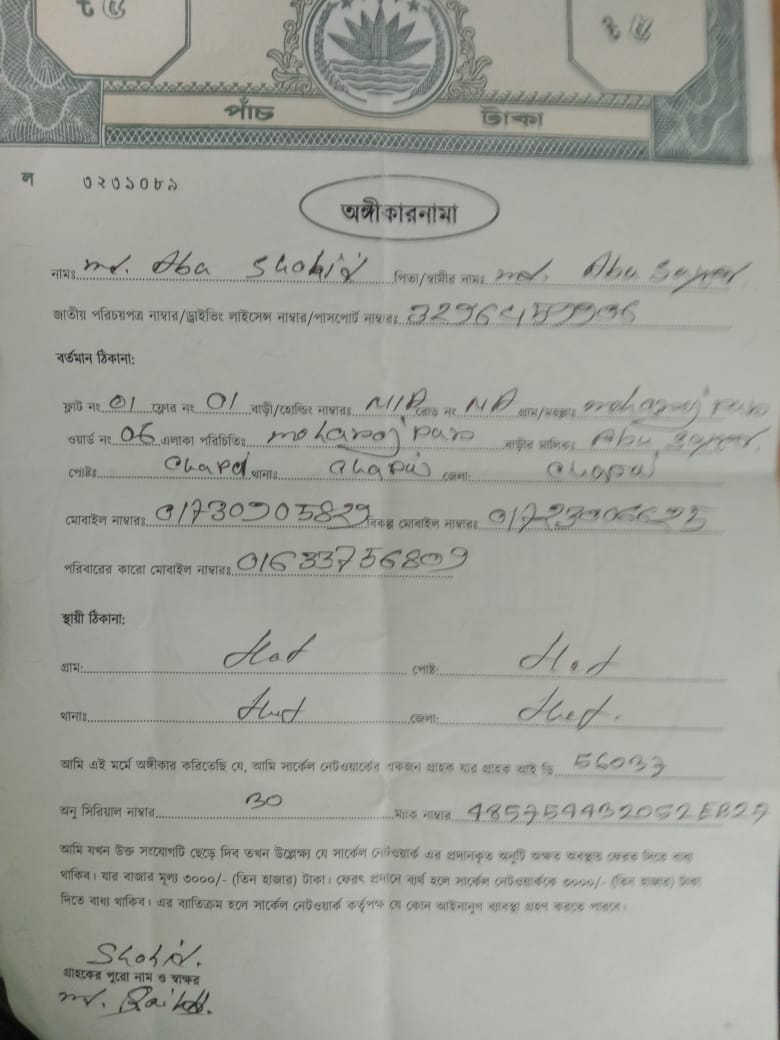 পাঁচ টাকা
ল ৩২৩১০৮৯
অঙ্গীকারনামা
নামঃ md. Aba Shohid পিতা/স্বামীর নামঃ md. Abu
জাতীয় পরিচয়পত্র নাম্বার/ড্রাইভিং লাইসেন্স নাম্বার/পাসপোর্ট নাম্বারঃ
বর্তমান ঠিকানা:
ফ্লাট নং 01 ফ্লোর নং 01 বাড়ী/হোল্ডিং নাম্বারঃ N/A রোড নং NA গ্রাম/মহল্লাঃ moharajpur
ওয়ার্ড নং 06 এলাকা পরিচিতিঃ moharajpur বাড়ীর মালিকঃ Abu
পোষ্টঃ Chapai থানাঃ Chapai জেলা: Chapai
মোবাইল নাম্বারঃ 01730905829 বিকল্প মোবাইল নাম্বারঃ
পরিবারের কারো মোবাইল নাম্বারঃ 01633756809
স্থায়ী ঠিকানা:
গ্রাম: পোষ্ট:
থানাঃ জেলা:
আমি এই মর্মে অঙ্গীকার করিতেছি যে, আমি সার্কেল নেটওয়ার্কের একজন গ্রাহক যার গ্রাহক আই ডি 56037
অনু সিরিয়াল নাম্বার BO ম্যাক নাম্বার
আমি যখন উক্ত সংযোগটি ছেড়ে দিব তখন উল্লেক্ষ্য যে সার্কেল নেটওয়ার্ক এর প্রদানকৃত অনুটি অক্ষত অবস্থায় ফেরত দিতে বাধ্য
থাকিব। যার বাজার মূল্য ৩০০০/- (তিন হাজার) টাকা। ফেরৎ প্রদানে ব্যর্থ হলে সার্কেল নেটওয়ার্ককে ৩০০০/- (তিন হাজার) টাকা
দিতে বাধ্য থাকিব। এর ব্যতিক্রম হলে সার্কেল নেটওয়ার্ক কর্তৃপক্ষ যে কোন আইনানুগ ব্যবস্থা গ্রহণ করতে পারবে।
Shohid.
গ্রাহকের পুরো নাম ও স্বাক্ষর
md.